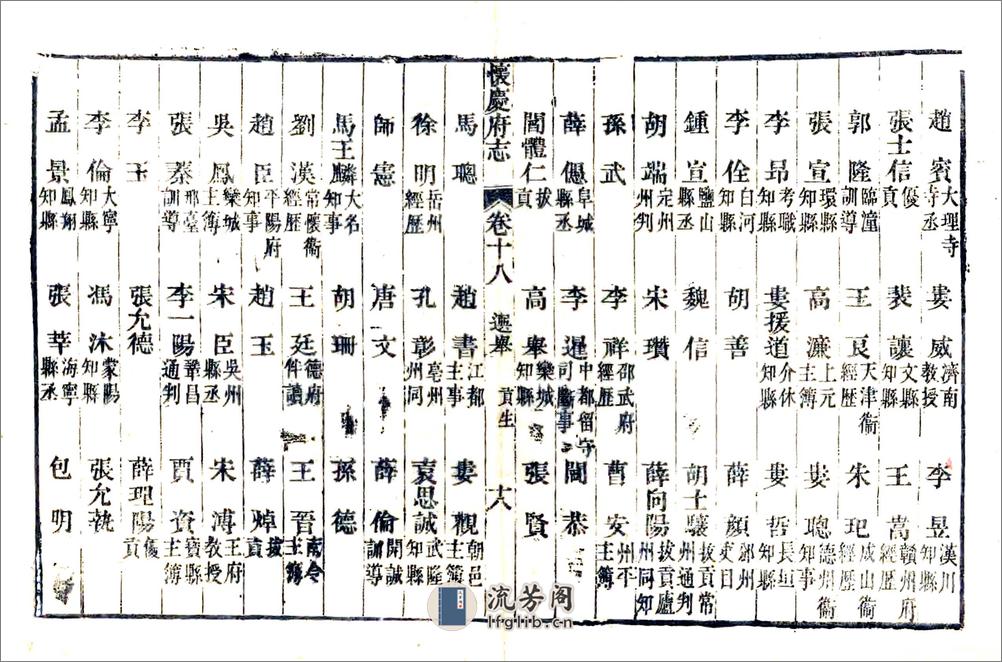 趙賓大理寺寺丞 婁威濟南教授 李昱漢川知縣
張士信優貢 裴讓文縣知縣 王嵩贛州府經歷
郭隆臨潼訓導 王良天津衞經歷 朱玘威山衞經歷
張宣環縣知縣 高濂上元主簿 婁聰德州衞經歷
李昂考職知縣 婁援道介休知縣 婁哲長垣知縣
李佺白河知縣 胡善 薛顏邳州吏目
鍾宣鹽山縣丞 魏信 胡士驤拔貢常州通判
胡端定州州判 宋瓚 薛同陽拔貢廬州同知
孫武 李祥邵武府經歷 曹安州平主簿
薛偲阜城縣丞 李暹中都留守司斷事 閻恭
閻體仁拔貢 高舉欒城知縣 張賢
懷慶府志 卷十八 選舉 貢生 十八
馬聰 趙書江都主事 婁觀朝邑主簿
徐明岳州經歷 孔彰亳州州同 袁思誠武隆知縣
師憲 唐文 薛倫聞誠訓導
馬王麟大名知事 胡珊 孫德
劉漢常懷衞經歷 王廷德府伴讀 王晉南令主簿
趙臣平陽府知事 趙玉 薛焯拔貢
吳鳳欒城主簿 宋臣吳州縣丞 宋溥王府教授
張蓁邢臺訓導 李一陽鞏昌通判 賈資寶縣主簿
李玉 張允德 薛理陽優貢
李倫大寧知縣 馮沐蒙陽知縣 張允執
孟景鳳翔知縣 張莘海寧縣丞 包明
流芳阁
lfglib.cn